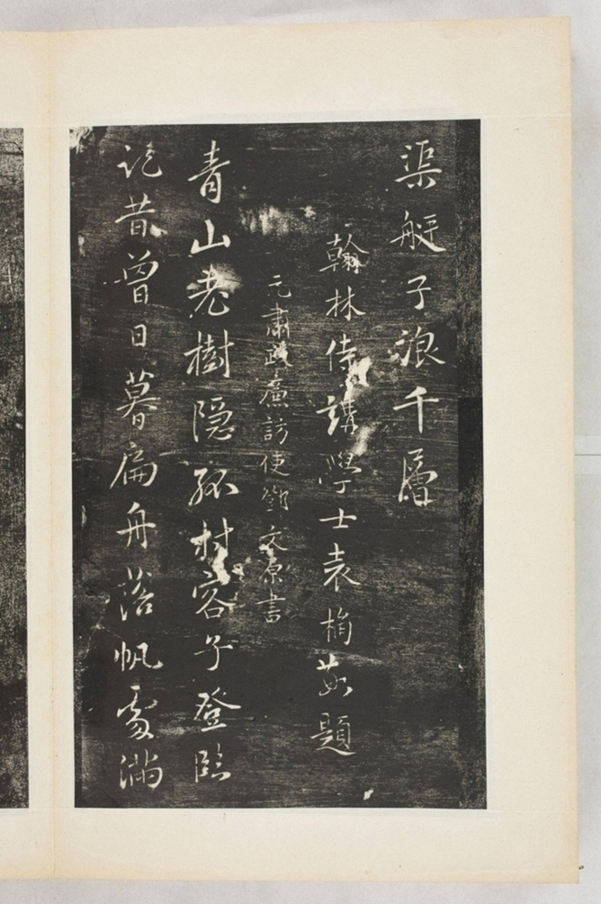 渠艇子浪千層
翰林侍講學士袁桷敬題
元肅政廉訪使鄧文原書
青山老樹隠孤村容予登臨
記昔曾日暮扁舟落帆處滿